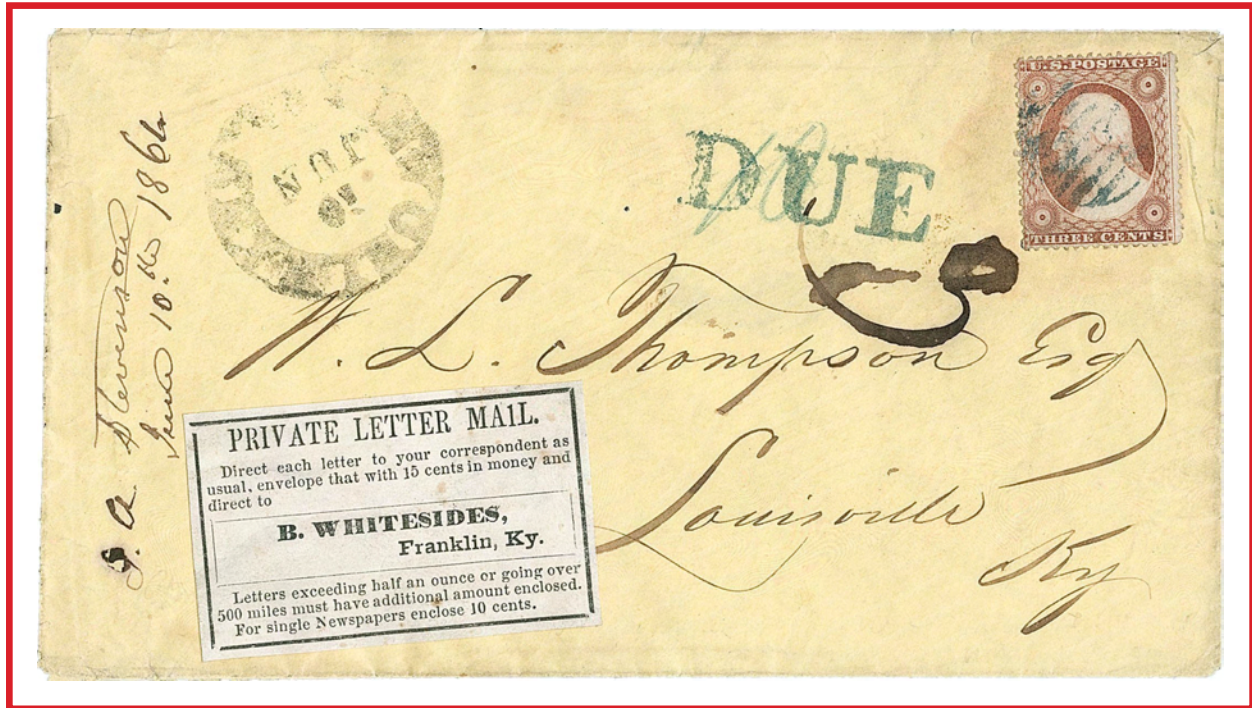 U.S. POSTAGE
THREE CENTS
JUN
10
DUE
10
J. A. Stevenson
June 10th 1861
W. L. Thompson Esq
Louisville
Ky
PRIVATE LETTER MAIL.
Direct each letter to your correspondent as
usual, envelope that with 15 cents in money and
direct to
B. WHITESIDES,
Franklin, Ky.
Letters exceeding half an ounce or going over
500 miles must have additional amount enclosed.
For single Newspapers enclose 10 cents.